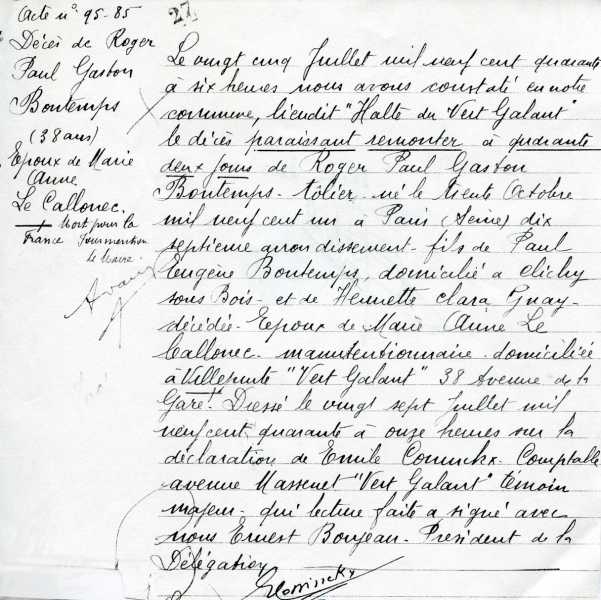 Acte n° 95-85
Décès de Roger
Paul Gaston
Bontemps
(38 ans)
Epoux de Marie
Anne
Le Callonec.
Mort pour la
France
le Maire.
27
Le vingt cinq Juillet mil neuf cent quarante
à six heures nous avons constaté en notre
commune, lieudit "Halte du Vert Galant"
le décès paraissant remonter à quarante
deux jours de Roger Paul Gaston
Bontemps - tôlier - né le trente Octobre
mil neuf cent un à Paris (Seine) dix
septième arrondissement - fils de Paul
Eugène Bontemps, domicilié à Clichy
sous Bois - et de Henriette Clara Guay -
décédée - Epoux de Marie Anne Le
Callonec - manutentionnaire - domiciliée
à Villepinte "Vert Galant" 38 Avenue de la
Gare. Dressé le vingt sept Juillet mil
neuf cent quarante à onze heures sur la
déclaration de Emile Coninckx - Comptable
avenue Massenet "Vert Galant" témoin
majeur - qui lecture faite a signé avec
nous Ernest Boujeau - Président de la
Délégation